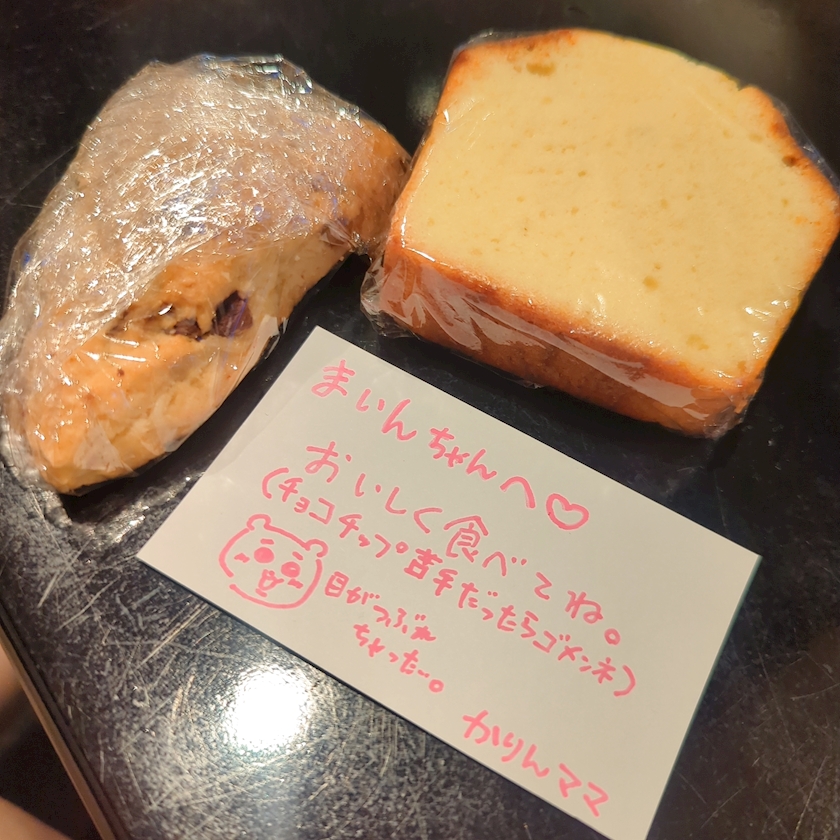 まいんちゃんへ♡
おいしく食べてね。
(チョコチップ苦手だったらゴメンネ)
目がつぶれ
ちゃったー。
かりんママ